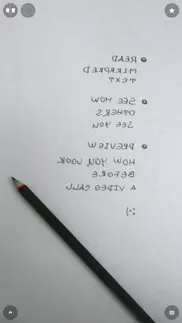 READ
MIRRORED
TEXT
SEE HOW
OTHERS
SEE YOU
PREVIEW
HOW YOU LOOK
BEFORE
A VIDEO CALL
:-)